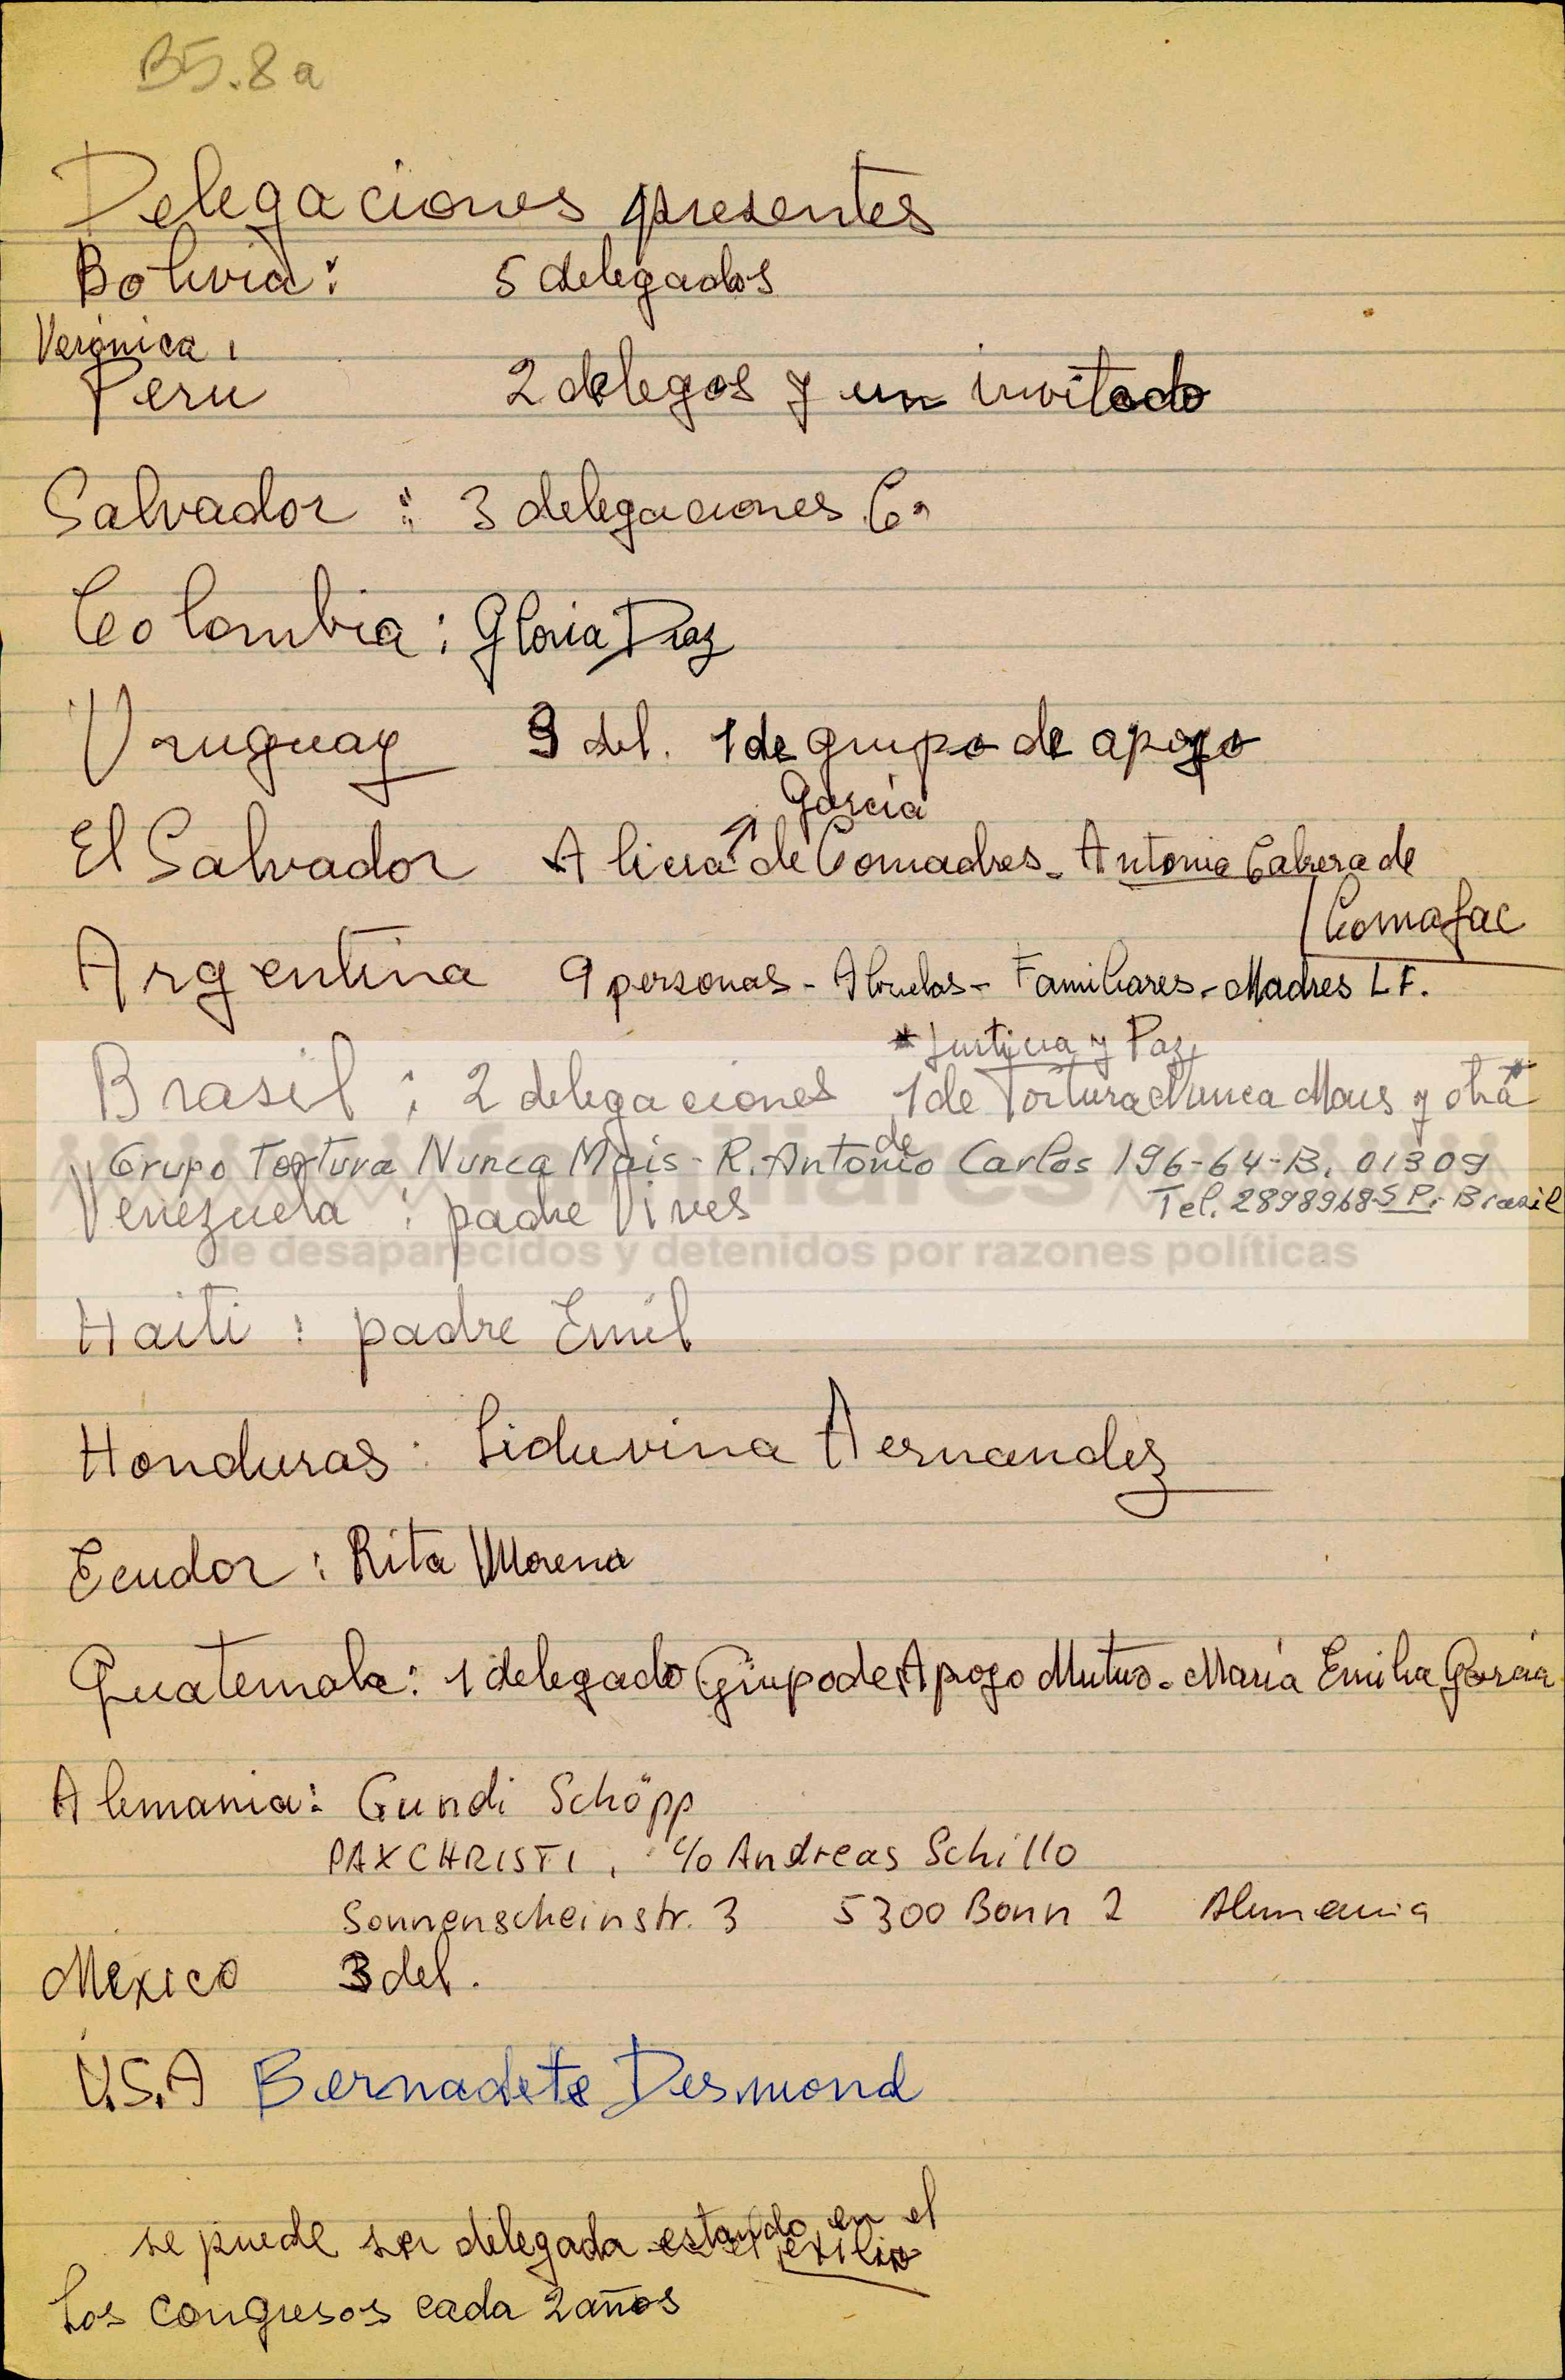 B5.8a
Delegaciones presentes
Bolivia: 5 delegados
Verónica,
Peru 2 delegos y un invitado
Salvador : 3 delegaciones
Colombia: Gloria Diaz
Uruguay 9 del. 1 de grupo de apoyo
García
El Salvador Alicia de Comadres - Antonia Cabrera de
Comafac
Argentina 9 personas - Abuelas - Familiares - Madres L F.
* Justicia y Paz
Brasil : 2 delegaciones 1 de Tortura Nunca Mais y otra *
de
Grupo Tortura Nunca Mais - R. Antonio Carlos 196-64-B. 01309
Tel. 2898968 S P. - Brasil
familiares
Venezuela : padre Vives
de desaparecidos y detenidos por razones políticas
Haiti : padre Emil
Honduras : Liduvina Hernandez
Ecudor : Rita Morena
Guatemala : 1 delegado Grupo de Apoyo Mutuo - María Emilia García
Alemania : Gundi Schöpp
PAX CHRISTI, c/o Andreas Schillo
Sonnenscheinstr. 3 5300 Bonn 2 Alemania
Mexico 3 del.
U.S.A Bernadete Desmond
se puede ser delegada estando en el
exilio
Los congresos cada 2 años